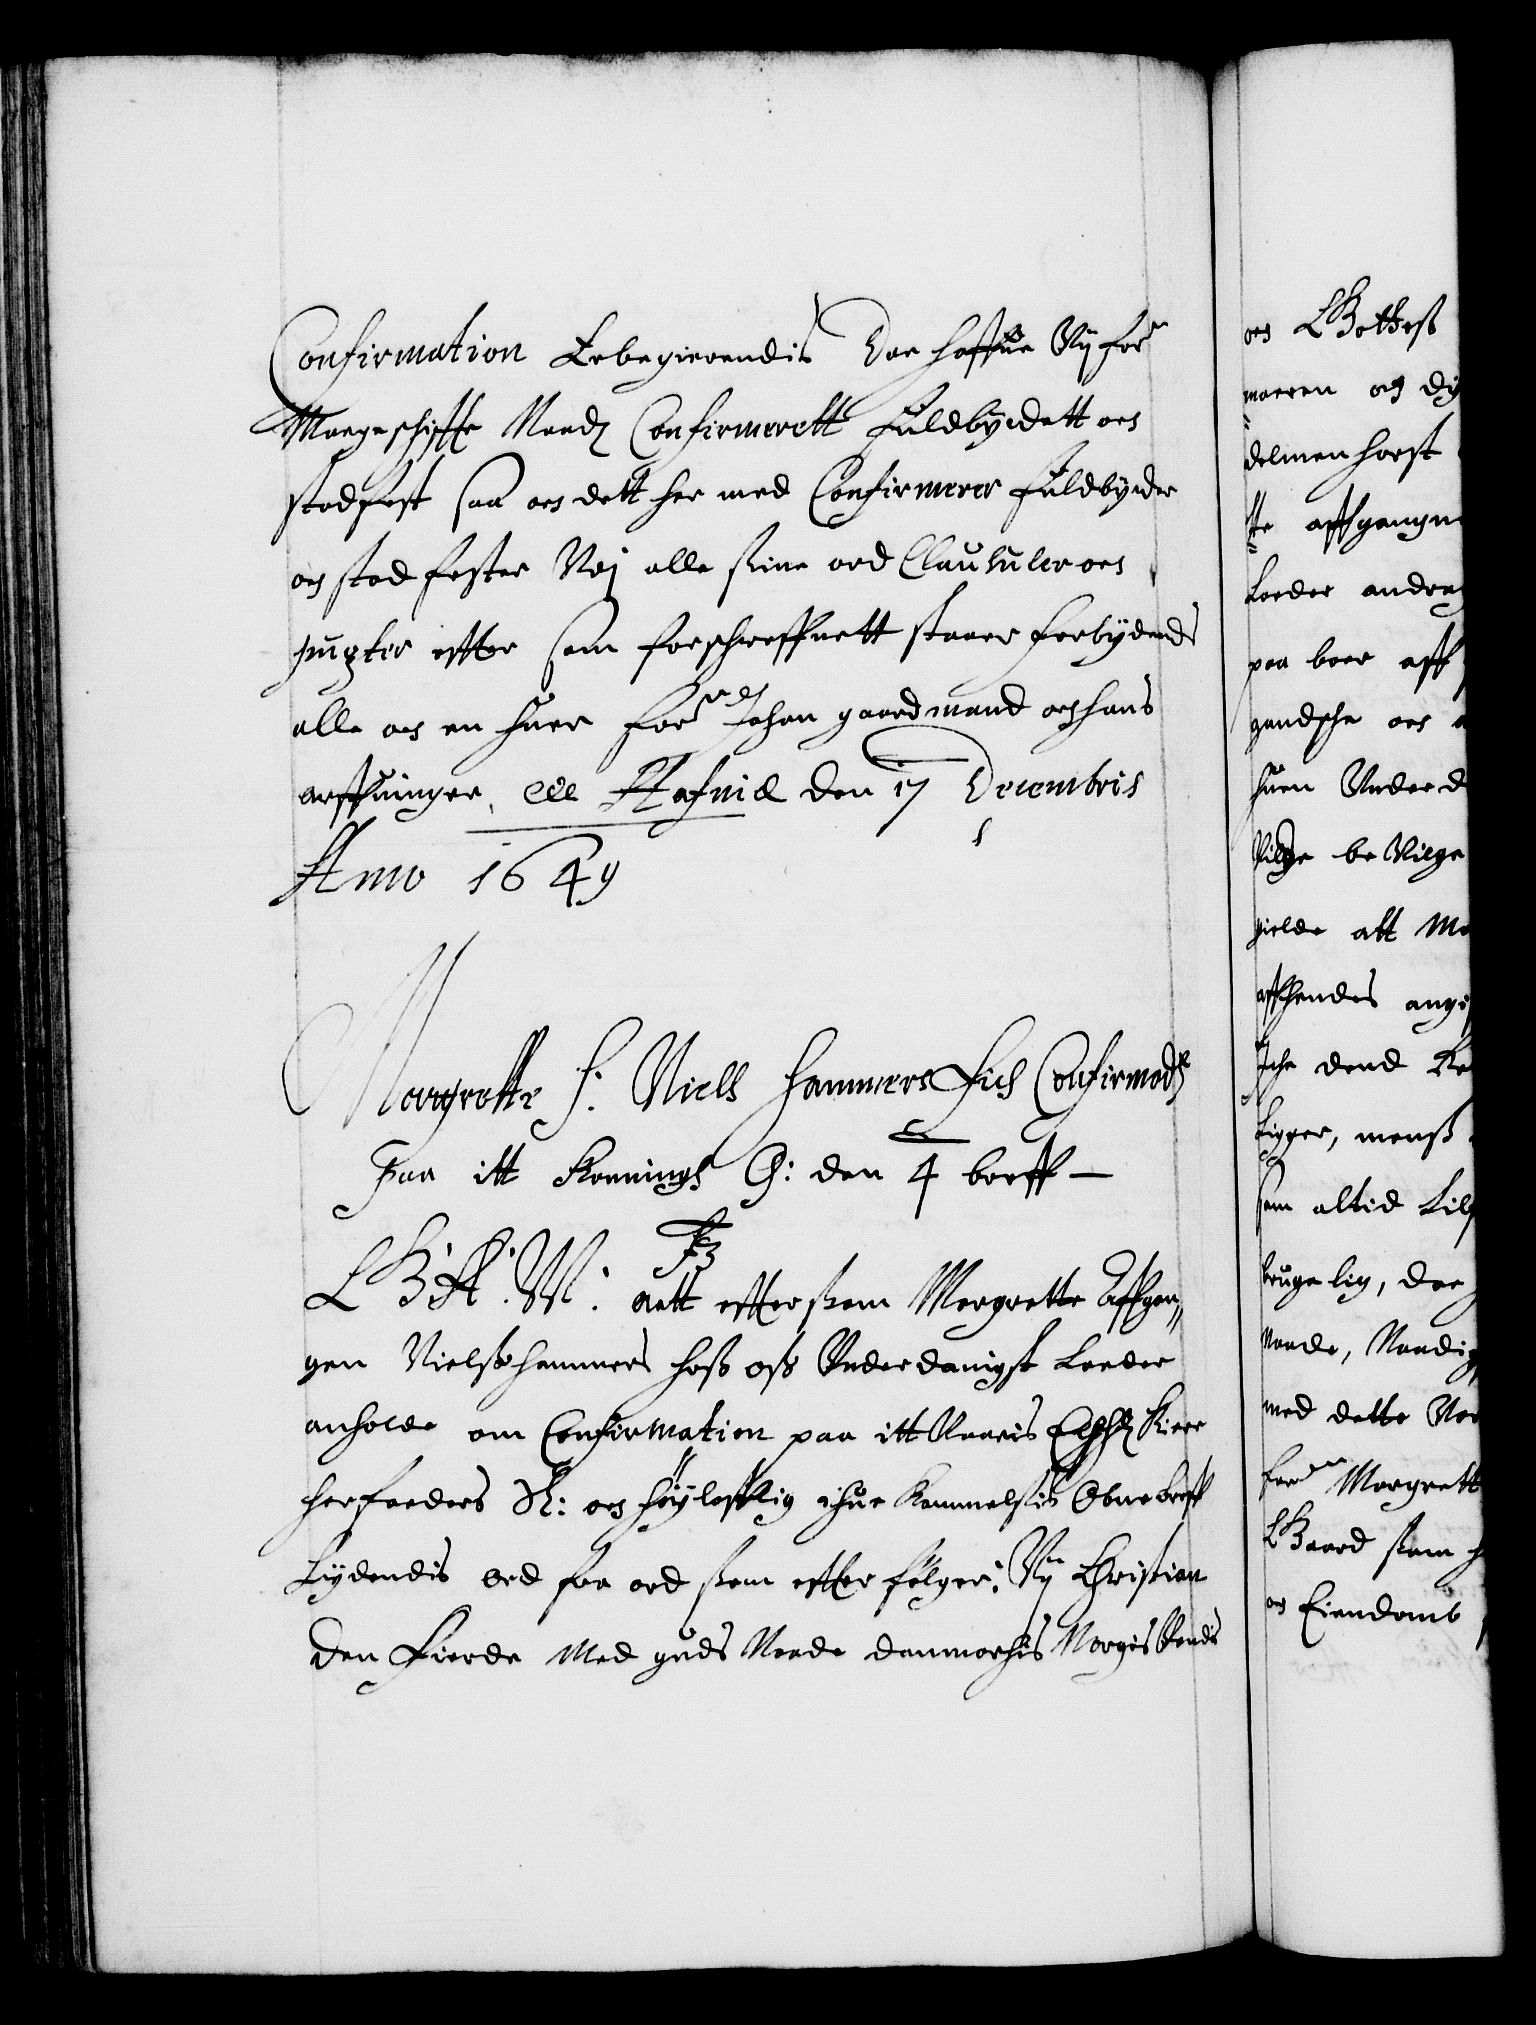 Confirmation Erbegierendis Daa haffue Vij for:ne
Mageschiffte Naad: Confirmerett Fuldbyrdett oc
stadfest saa oc dett her med Confirmerer fuldbyrder
oc stadfester Voj alle sine ord Clausuler oc
puncter effter som forschreffuett staaer forbydends
alle oc en huer for:ne Johan gaardmand oc hans
arffuinger, etc Hafniæ den 17 Decembris
Anno 1649
Margrette S. Niels Hammers Fich Confirmads
Paa itt Konnings C: den 4 breff –
F3
C G A. W: att efftersom Margrette Affgan,,
gen Nielss Hammers hoss oss Underdanigst Lader
anholde om Confirmation paa itt Vaaris Elsch: Kiere
herfaders S: oc Høylofflig ihue Kommelse Obne breff
Liydendis ord fra ord som effter følger: Vij Christian
den Fierde Med guds Naade danmarchis Norgis Vends
oc Gottess
marren och dy
delmenhorst
te affgangne
Lader andrag
paa boer aff
gandsche oc
huen Under d
Vilge be Vilge
gielde att Ma
affhendes angi
Iche dend
Ligger, menss
som altid Lil
brugelig, der
Naade, Naadig
med dette Vor
for:ne Margrett
Gaard som h
oc Eiendomb